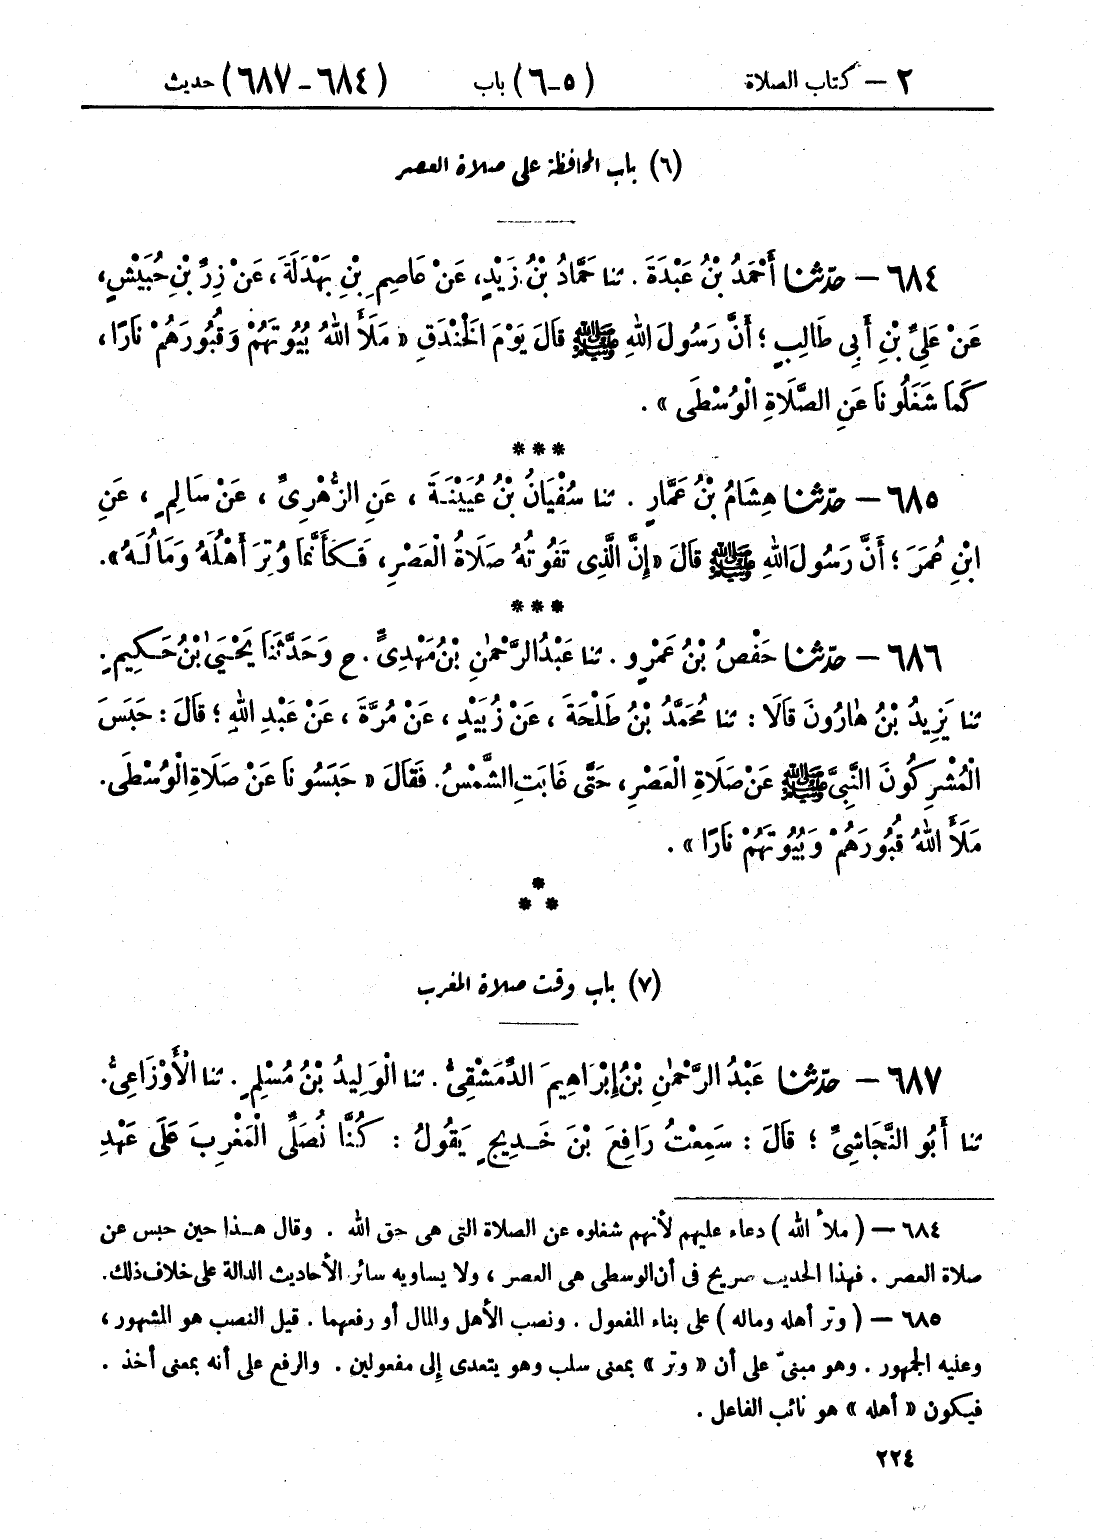 ٢ – كتاب الصلاة (٥-٦) باب (٦٨٤-٦٨٧) حديث
(٦) باب المحافظة على صلاة العصر
٦٨٤ – حَدَّثَنَا أَحْمَدُ بْنُ عَبْدَةَ . ثنا حَمَّادُ بْنُ زَيْدٍ، عَنْ عَاصِمِ بْنِ بَهْدَلَةَ، عَنْ زِرِّ بْنِ حُبَيْشٍ،
عَنْ عَلِيِّ بْنِ أَبِي طَالِبٍ ؛ أَنَّ رَسُولَ اللهِ ﷺ قَالَ يَوْمَ الْخَنْدَقِ « مَلَأَ اللهُ بُيُوتَهُمْ وَقُبُورَهُمْ نَارًا،
كَمَا شَغَلُونَا عَنِ الصَّلَاةِ الْوُسْطَى » .
***
٦٨٥ – حَدَّثَنَا هِشَامُ بْنُ عَمَّارٍ . ثنا سُفْيَانُ بْنُ عُيَيْنَةَ ، عَنِ الزُّهْرِىِّ ، عَنْ سَالِمٍ ، عَنِ
ابْنِ عُمَرَ ؛ أَنَّ رَسُولَ اللهِ ﷺ قَالَ « إِنَّ الَّذِى تَفُوتُهُ صَلَاةُ الْعَصْرِ، فَكَأَنَّمَا وُتِرَ أَهْلُهُ وَمَالُهُ».
***
٦٨٦ – حَدَّثَنَا حَفْصُ بْنُ عَمْرٍو . ثنا عَبْدُ الرَّحْمٰنِ بْنُ مَهْدِىٍّ . ح وَحَدَّثَنَا يَحْيَىٰ بْنُ حَكِيمٍ.
ثنا يَزِيدُ بْنُ هٰارُونَ قَالَا : ثنا مُحَمَّدُ بْنُ طَلْحَةَ ، عَنْ زُبَيْدٍ ، عَنْ مُرَّةَ ، عَنْ عَبْدِ اللهِ ؛ قَالَ : حَبَسَ
الْمُشْرِكُونَ النَّبِيَّ ﷺ عَنْ صَلَاةِ الْعَصْرِ، حَتَّى غَابَتِ الشَّمْسُ. فَقَالَ « حَبَسُونَا عَنْ صَلَاةِ الْوُسْطَى.
مَلَأَ اللهُ قُبُورَهُمْ وَبُيُوتَهُمْ نَارًا » .
***
(٧) باب وقت صلاة المغرب
٦٨٧ – حَدَّثَنَا عَبْدُ الرَّحْمٰنِ بْنُ إِبْرَاهِيمَ الدِّمَشْقِىُّ . ثنا الْوَلِيدُ بْنُ مُسْلِمٍ . ثنا الْأَوْزَاعِىُّ.
ثنا أَبُو النَّجَاشِىِّ ؛ قَالَ : سَمِعْتُ رَافِعَ بْنَ خَدِيجٍ يَقُولُ : كُنَّا نُصَلِّى الْمَغْرِبَ عَلَى عَهْدِ
٦٨٤ – ( ملأ الله ) دعاء عليهم لأنهم شغلوه عن الصلاة التى هى حق الله . وقال هـذا حين حبس عن
صلاة العصر . فهذا الحديث صريح فى أن الوسطى هى العصر ، ولا يساويه سائر الأحاديث الدالة على خلاف ذلك.
٦٨٥ – ( وتر أهله وماله ) على بناء المفعول . ونصب الأهل والمال أو رفعهما . قيل النصب هو المشهور ،
وعليه الجمهور . وهو مبنىّ على أن « وتر » بمعنى سلب وهو يتعدى إلى مفعولين . والرفع على أنه بمعنى أخذ .
فيكون « أهله » هو نائب الفاعل .
٢٢٤